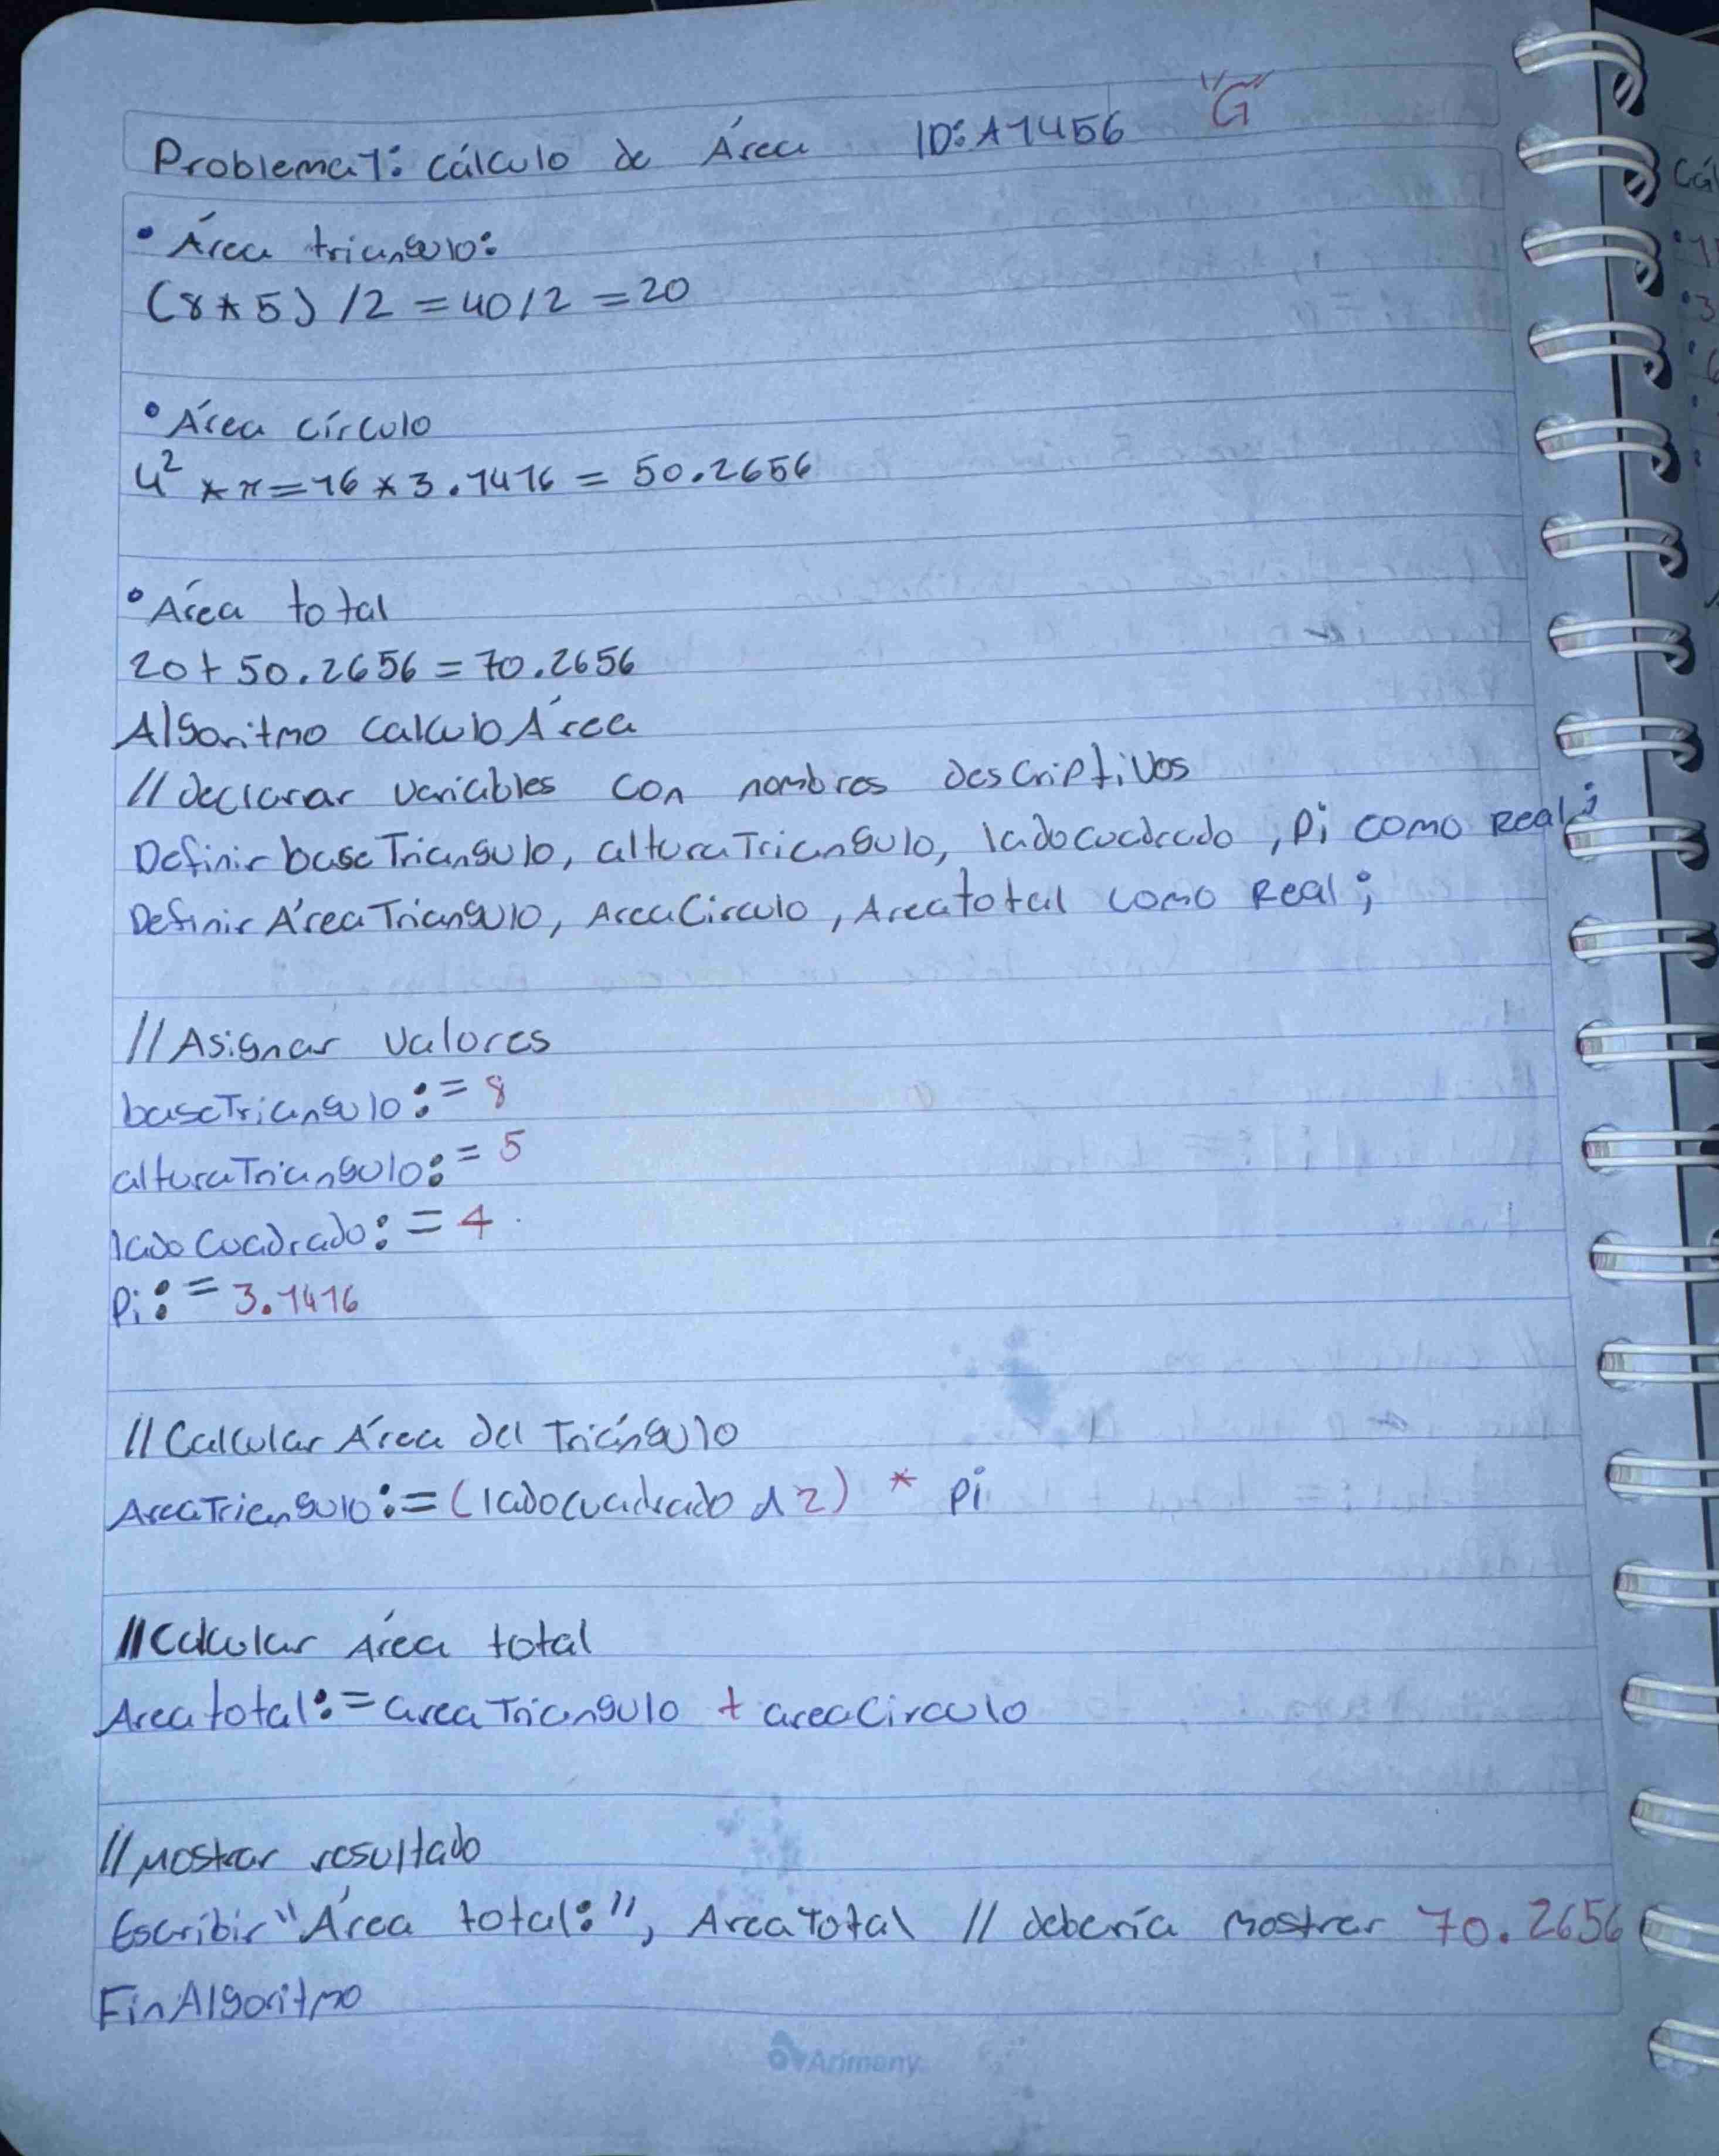 Problema 1: cálculo de Área ID: A1456 G
• Área triangulo:
(8*5) /2 = 40/2 = 20
• Área círculo
4² * π = 16 * 3.1416 = 50.2656
• Área total
20 + 50.2656 = 70.2656
Algoritmo CalculoÁrea
// declarar variables con nombres descriptivos
Definir baseTriangulo, alturaTriangulo, ladocuadrado, Pi como Real;
Definir ÁreaTriangulo, AreaCirculo, Areatotal como Real;
// Asignar valores
baseTriangulo := 8
alturaTriangulo := 5
ladoCuadrado := 4
Pi := 3.1416
// Calcular Área del Triángulo
AreaTriangulo := (ladocuadrado ^ 2) * pi
// Calcular Área total
Areatotal := areaTriangulo + areaCirculo
// Mostrar resultado
Escribir "Área total:", AreaTotal // debería mostrar 70.2656
FinAlgoritmo
Arimany